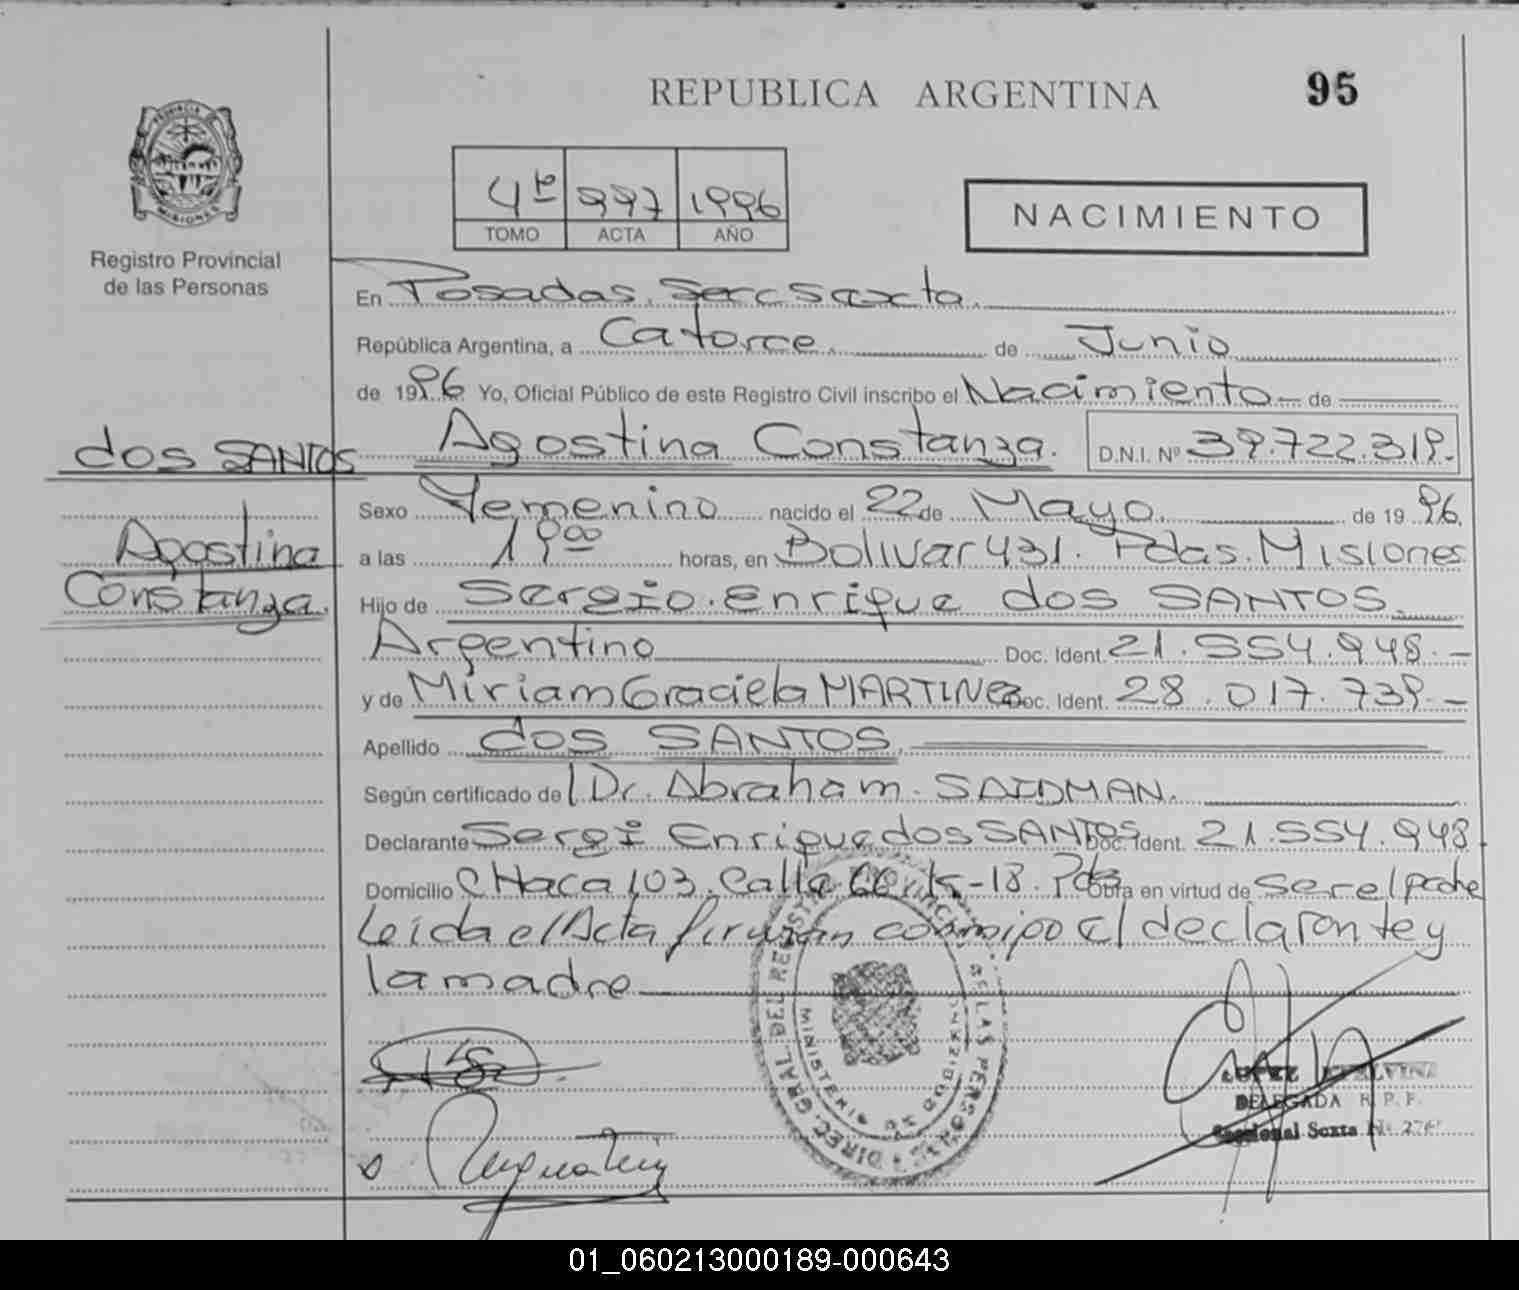 REPUBLICA ARGENTINA
95
PROVINCIA DE
MISIONES
Registro Provincial
de las Personas
4to 997 1996
TOMO ACTA AÑO
NACIMIENTO
En Posadas. Secc Sexta.
República Argentina, a Catorce. de Junio
de 1996 Yo, Oficial Público de este Registro Civil inscribo el Nacimiento de
dos SANTOS
Agostina Constanza. D.N.I. Nº 39.722.319.-
Agostina
Constanza.
Sexo Femenino nacido el 22 de Mayo. de 19 96.
a las 19 00 horas, en Bolivar 431. Pdas. Misiones
Hijo de Sergio. Enrique dos SANTOS.
Argentino Doc. Ident. 21.554.948.-
y de Miriam Graciela MARTINez Doc. Ident. 28.017.739.-
Apellido dos SANTOS.
Según certificado de Dr. Abraham. SAIDMAN.
Declarante Sergi Enrique dos SANTOS Doc. Ident. 21.554.948
Domicilio CHaca 103. Calle 66 18. Pdas Obra en virtud de Ser el padre
Leida el Acta firman conmigo el declarante y
la madre
DIREC. GRAL DEL REGISTRO PROVINCIAL DE LAS PERSONAS
MINISTERIO DE GOBIERNO
LOPEZ
DELEGADA R. P. P.
Seccional Sexta
01_060213000189-000643